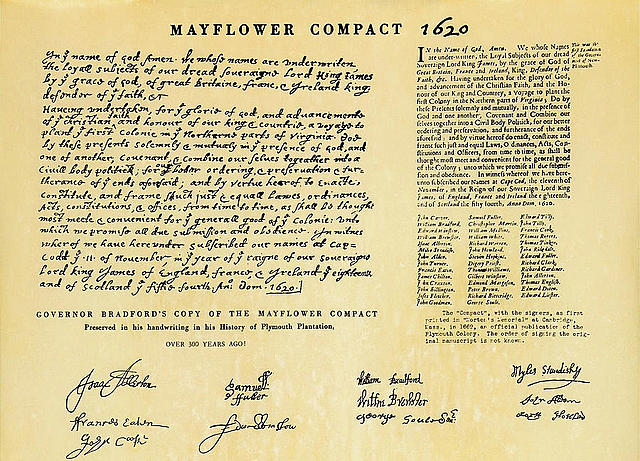 MAYFLOWER COMPACT 1620
In y name of god Amen. We whose names are underwriten,
the loyall subjects of our dread soveraigne Lord King James
by y grace of god, of great Britaine, franc, & Ireland king,
defendor of y faith, &c
Haveing undertaken, for y glorie of god, and advancemente
of y christian faith and honour of our king & countrie, a voyage to
plant y first colonie in y Northerne parts of virginia. Doe
by these presents solemnly & mutualy in y presence of god, and
one of another, covenant, & combine our selves togeather into a
Civill body politick; for better ordering, & preservation & fur-
therance of y ends aforesaid; and by vertue hearof to Enacte,
constitute, and frame shuch just & equall Lawes, ordinances,
Acts, constitutions, & offices, from time to time, as shall be thought
most meete & convenient for y generall good of y Colonie: unto
which we promise all due submission and obedience. In witnes
wherof we have hereunder subscribed our names at Cap-
Codd y .11. of November, in y year of y raigne of our soveraigne
Lord king James of England, france, & Ireland y eighteenth
and of Scotland y fiftie fourth. An: Dom. 1620.]
GOVERNOR BRADFORD'S COPY OF THE MAYFLOWER COMPACT
Preserved in his handwriting in his History of Plymouth Plantation,
OVER 300 YEARS AGO!
In the Name of God, Amen. We whose Names
are under-written, the Loyal Subjects of our dread
Sovereign Lord King James, by the grace of God of
Great Britain, France and Ireland, King, Defendor of the
Faith, &c. Having undertaken for the glory of God,
and advancement of the Christian Faith, and the Ho-
nour of our King and Countrey, a Voyage to plant the
first Colony in the Northern parts of Virginia; Do by
these Presents solemnly and mutually, in the presence of
God and one another, Covenant and Combine our
selves together into a Civil Body Politick, for our better
ordering and preservation, and furtherance of the ends
aforesaid: and by virtue hereof do enact, constitute and
frame such just and equal Laws, Ordinances, Acts, Con-
stitutions and Officers, from time to time, as shall be
thought most meet and convenient for the general good
of the Colony; unto which we promise all due submissi-
on and obedience. In witness whereof we have here-
unto subscribed our Names at Cape Cod, the eleventh
of November, in the Reign of our Sovereign Lord King
James, of England, France and Ireland the eighteenth,
and of Scotland the fifty fourth, Anno Dom. 1620.
John Carver, Samuel Fuller, Edward Tilly,
William Bradford, Christopher Martin, John Tilly,
Edward Winslow, William Mullins, Francis Cook,
William Brewster, William White, Thomas Rogers,
Isaac Allerton, Richard Warren, Thomas Tinker,
Miles Standish, John Howland, John Ridgdale,
John Alden, Steven Hopkins, Edward Fuller,
John Turner, Richard Clark,
Francis Eaton, Thomas Williams, Richard Gardiner,
James Chilton, Gilbert Winslow, John Allerton,
John Craxton, Edmund Margeson, Thomas English,
John Billington, Peter Brown, Edward Doten,
Richard Bitteridge, Edward Liester,
John Goodman, George Soule,
The "Compact", with the signers, as first
printed in "Morton's Memorial" at Cambridge,
Mass., in 1669, an official publication of the
Plymouth Colony. The order of signing the
original manuscript is not known.
Isaac Allerton
Samuell ffuller
William Bradford
Myles Standish
Francis Eaton
William Brewster
John Alden